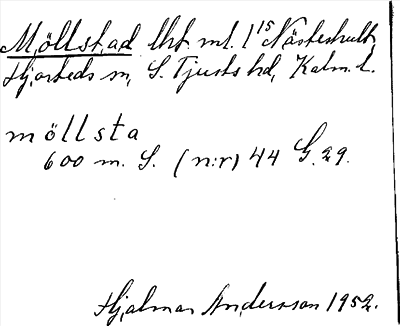 Möllstad lht. mt. 1¹⁵ Nästeshult,
Hjorteds sn, S. Tjusts hd, Kalm. l.
möllsta
600 m. S. (n:r) 44 G. 29.
Hjalmar Andersson 1952.